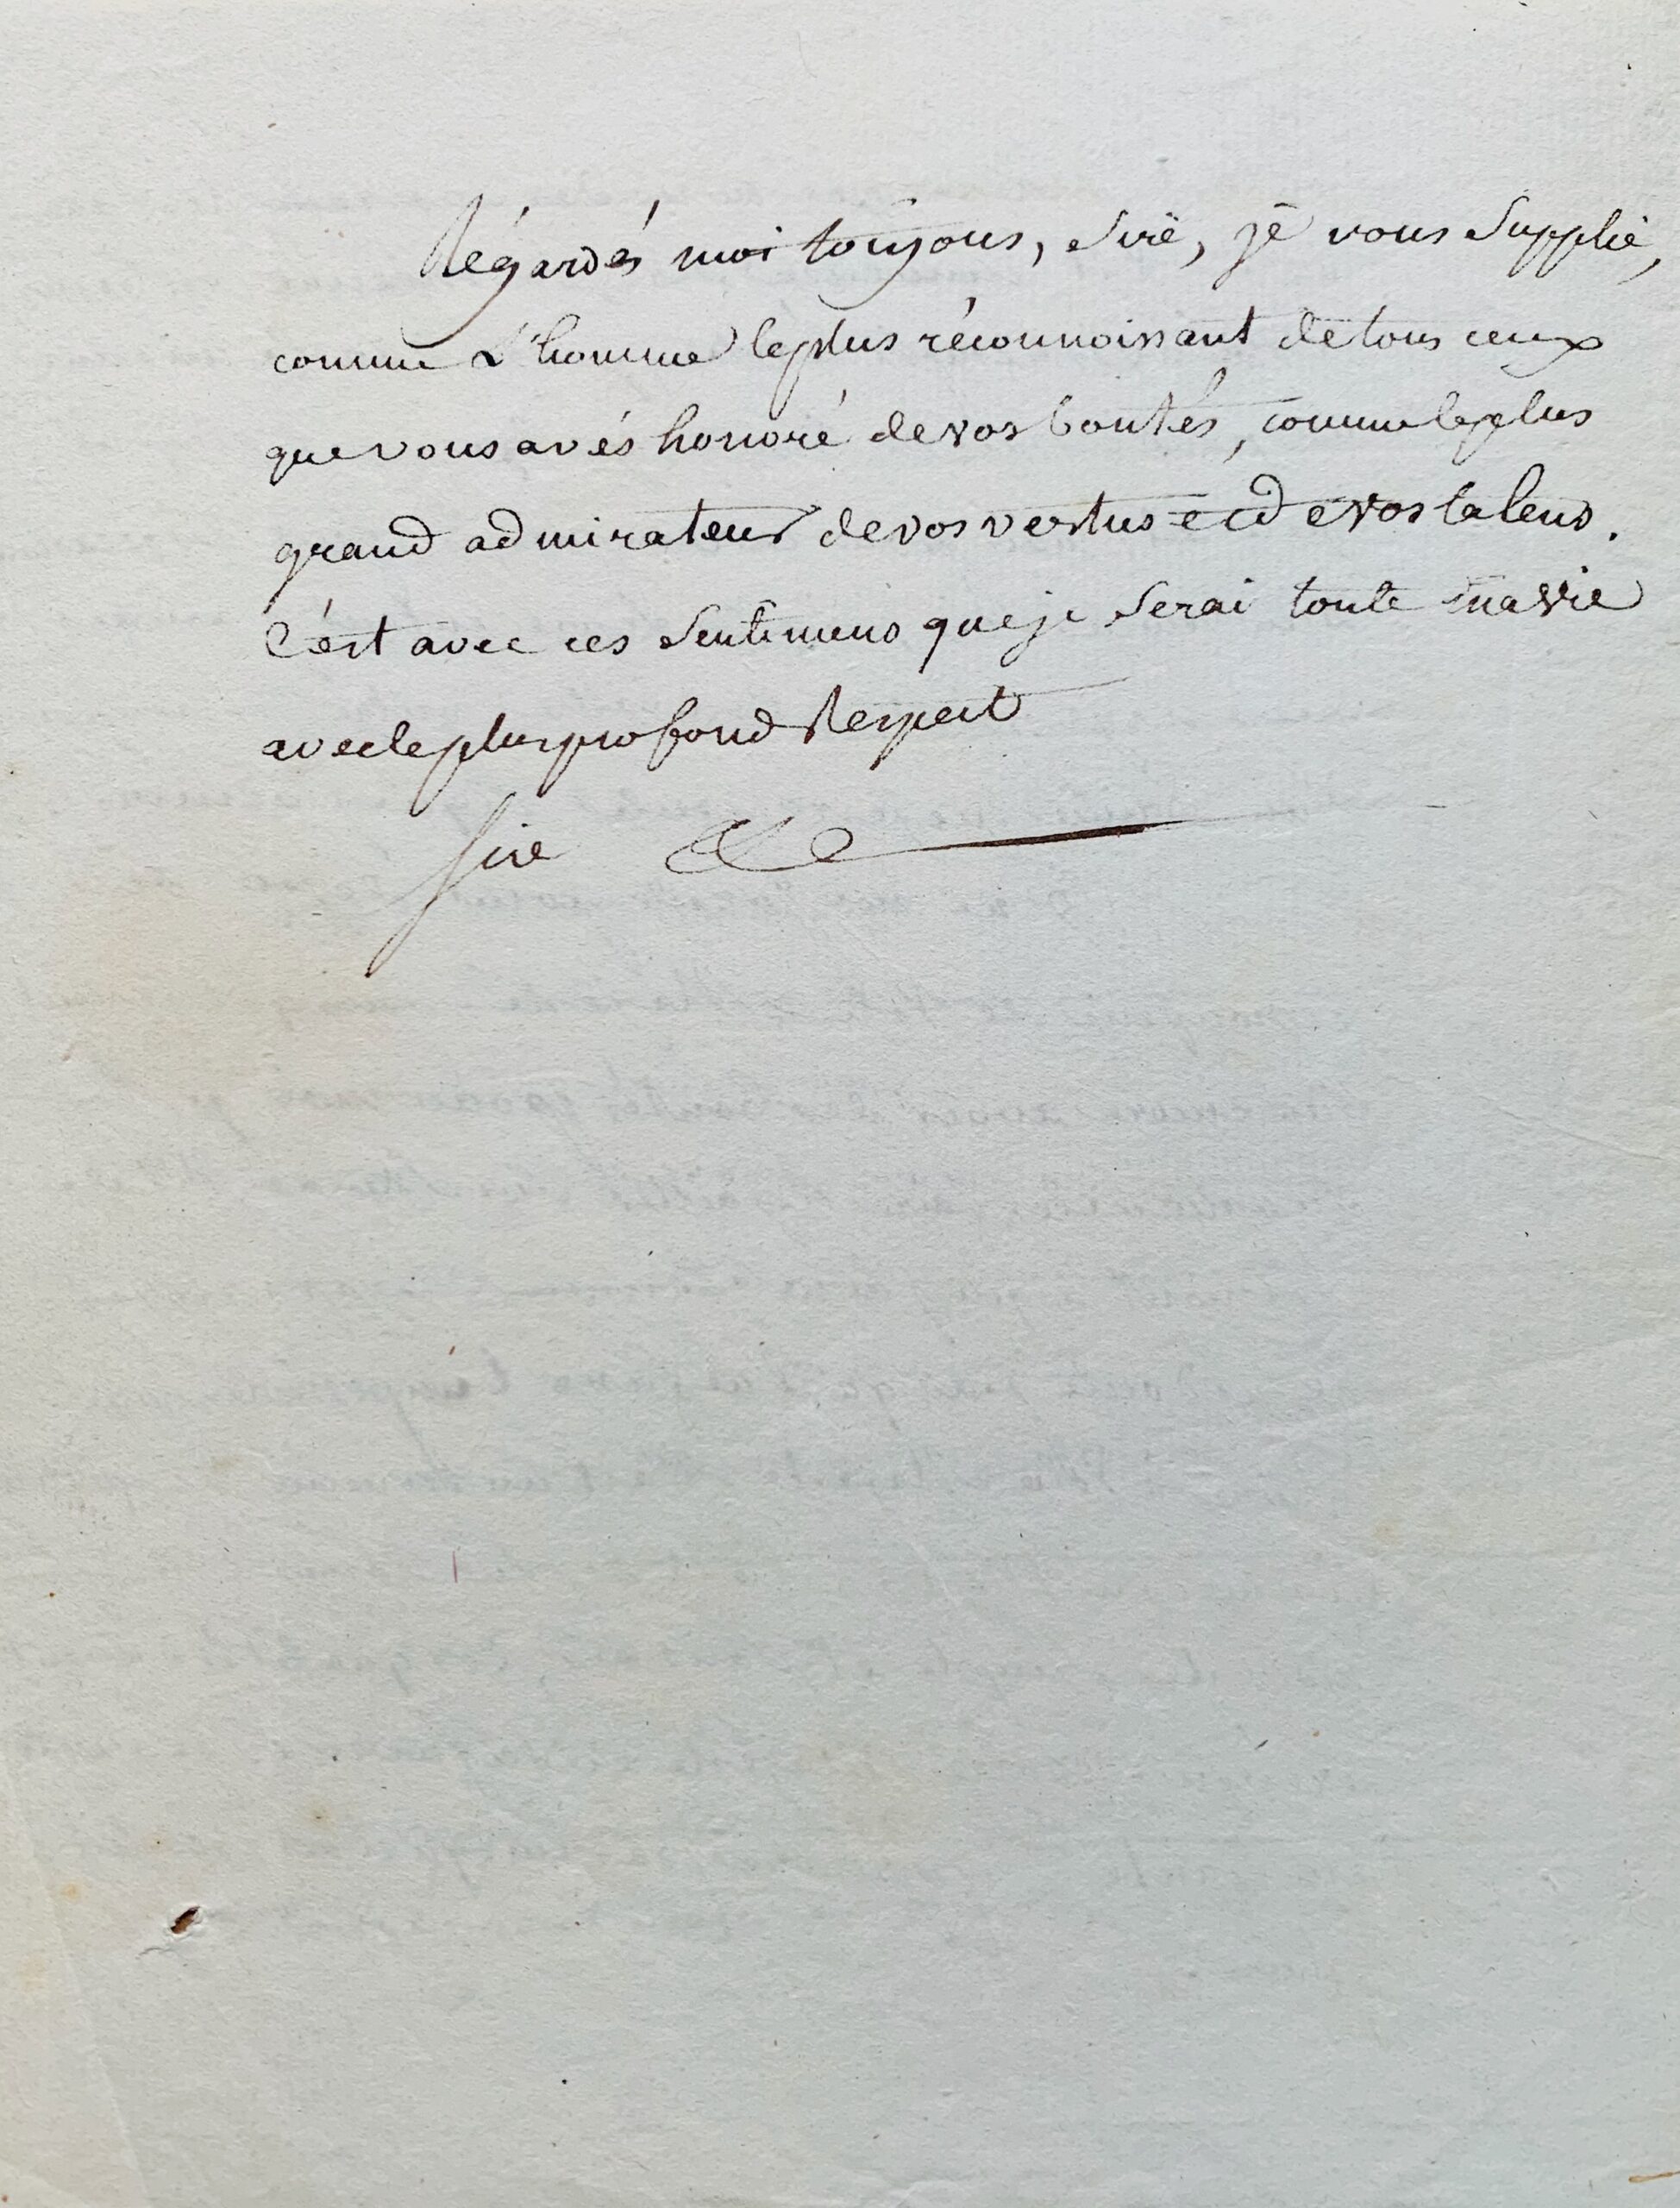 Régardés moi toujours, Sire, je vous Supplie,
comme L'homme le plus réconnoissant de tous ceux
que vous avés honoré de vos bontés, comme le plus
grand admirateur de vos vertus et de vos talens.
C'est avec ces Sentimens que je Serai toute ma vie
avec le plus profond Respect
Sire &c